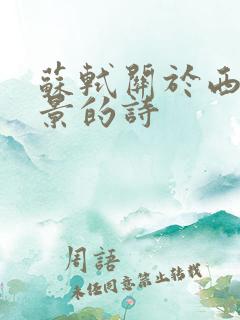 蘇軾關於西
景的詩
周語
未經同意禁止轉載